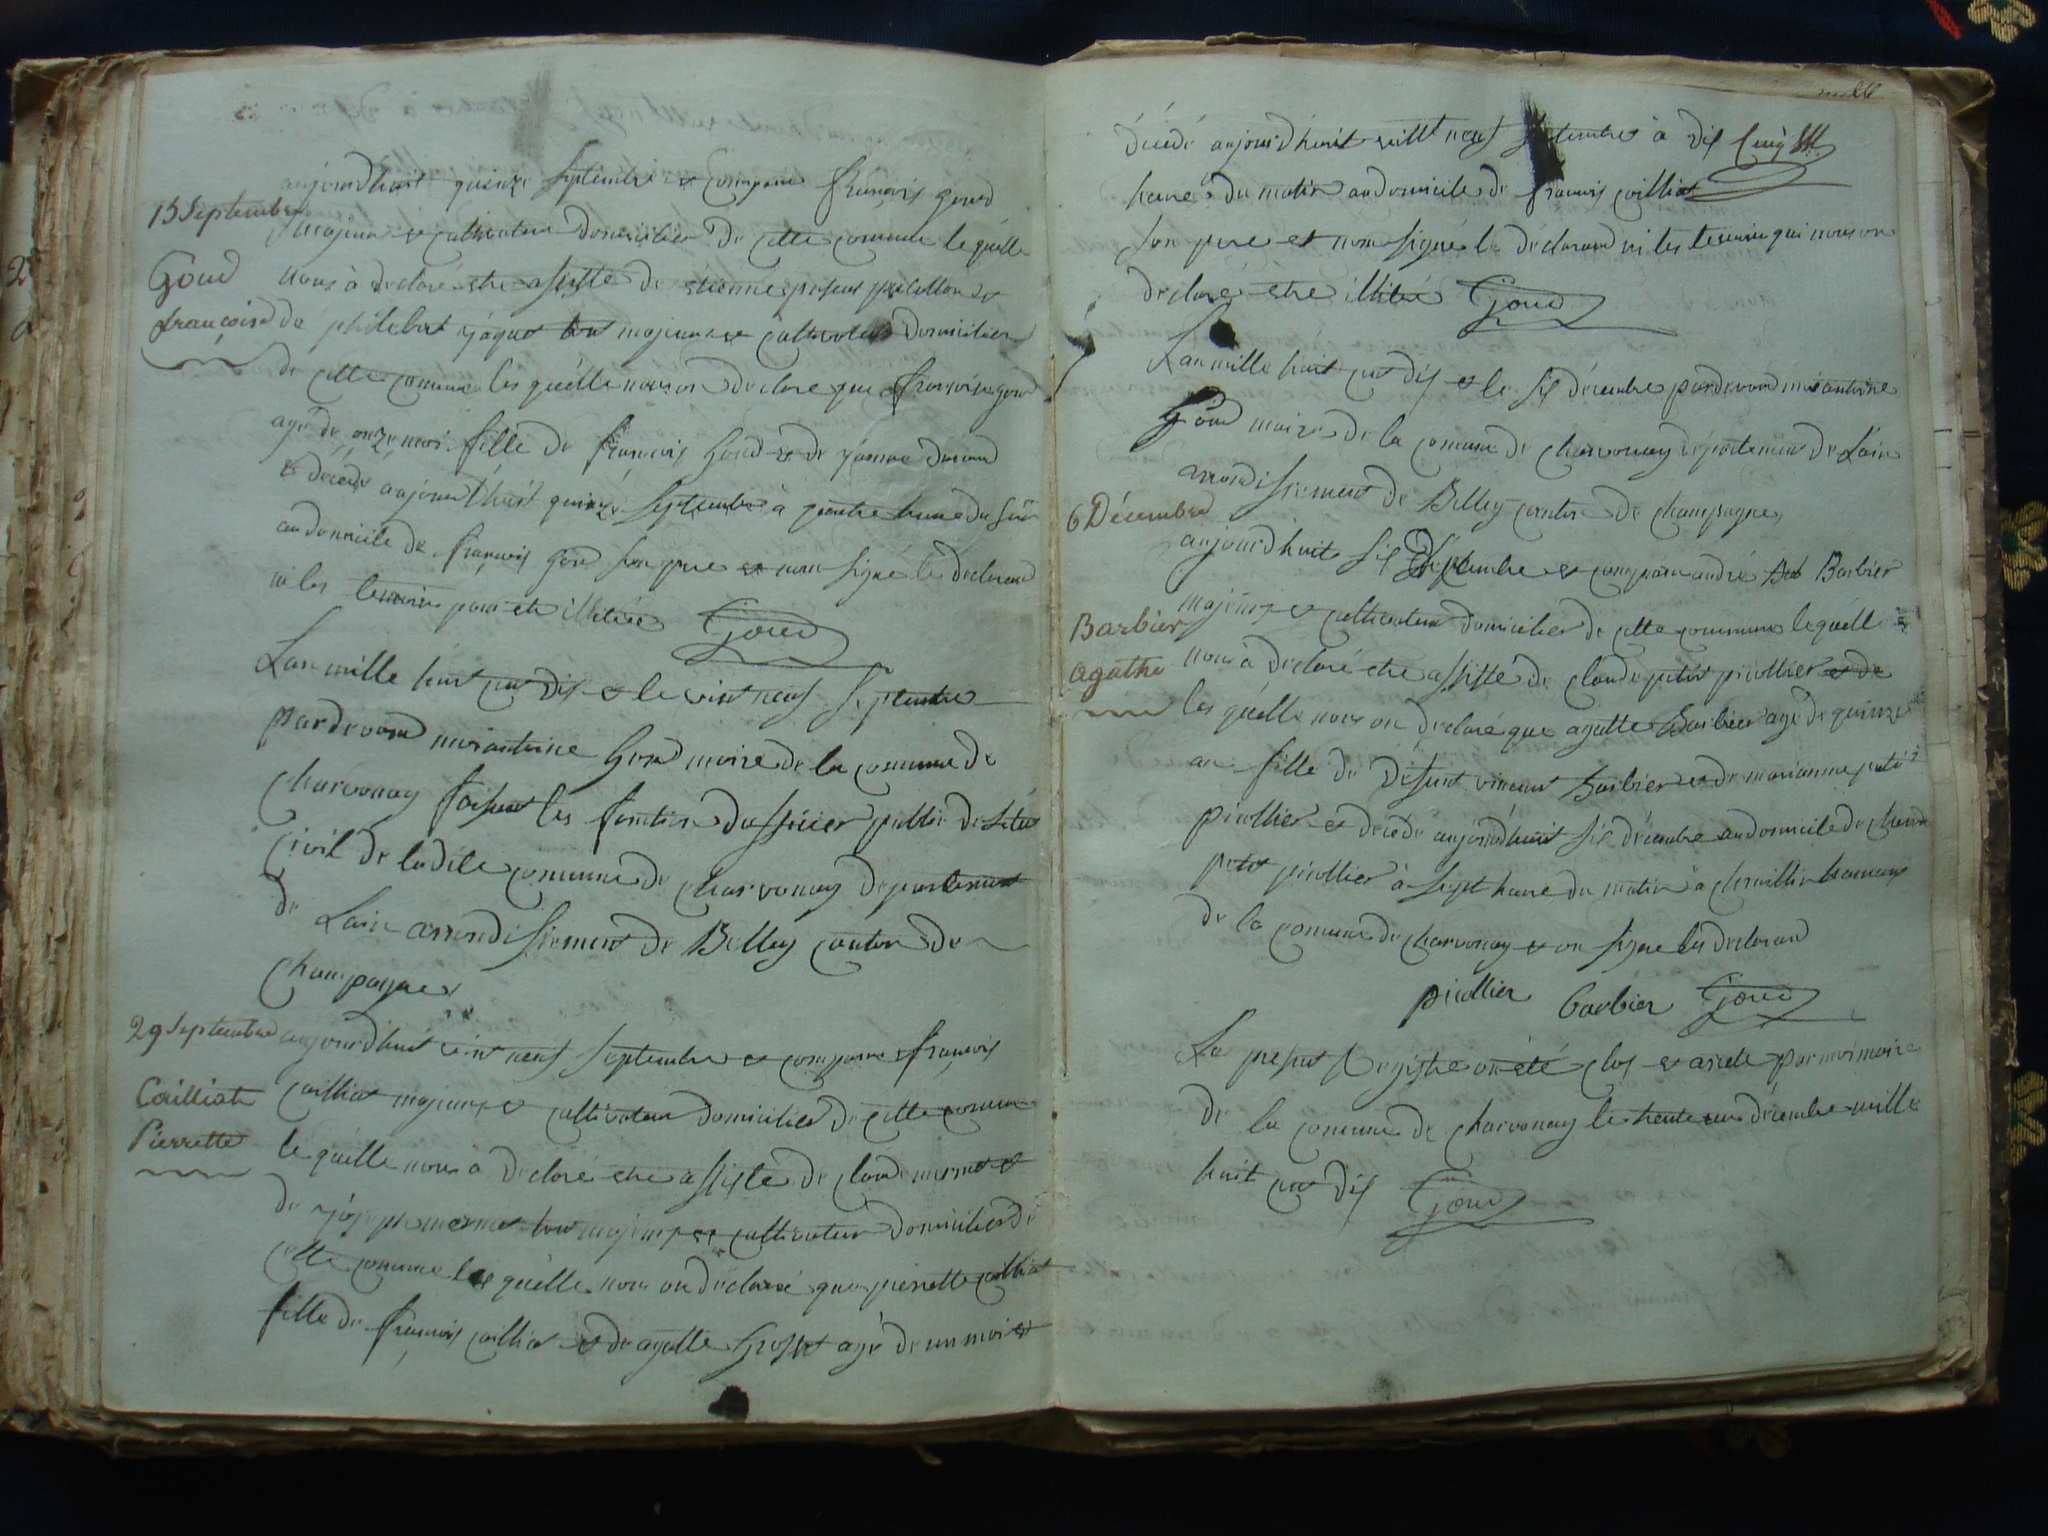 aujourdhuit quinze septembre et comparu françois goud
15 Septembre
majeur et cultivateur domicilier de cette comune le quélle
Goud
nous à declaré etre assisté de etienne
françoise
de philibert jaque tous majeur et cultivateur domicilier
de cette comune les quélle nous on declaré que françoise goud
agé de onze moi fille de françois Goud et de
et décédé aujourdhuit quinze septembre à quatre heure du soir
au domicile de françois goud son pere et nom signé le declarand
ni les temoin pour etre illitéré Goud
Lan mille huit cent dix et le vint neuf septembre
pardevand moi antoine Goud maire de la comune de
charvonay faisant les fontion dofficier public de létat
civil de ladite comune de charvonay departement
de Lain arrondissement de Belley canton de
champagne
29 Septembre
aujourdhuit vint neuf septembre et comparu françois
Cailliat
cailliat majeur et cultivateur domicilier de cette comune
Pierrette
le quélle nous à declaré etre assisté de claude mermet et
de joseph mermet tous majeur et cultivateur domicilier de
cette comune les quélle nous on declaré que pierrette cailliat
fille de françois cailliat et de agatte Grosset agé de un moi et
décédé aujourdhuit vint neuf septembre à dix
heure du matin au domicile de françois cailliat
son pere et nom signé le declarand ni les temoin qui nous on
declaré etre illitéré Goud
Lan mille huit cent dix et le six décembre pardevand moi antoine
Goud maire de la comune de charvonay departement de Lain
arrondissement de Belley canton de champagne
6 Décembre
aujourdhuit six et comparu andré Barbier
majeur et cultivateur domicilier de cette commune le quélle
Barbier
agathe
nous à declaré etre assisté de claude petit picollier et de
les quélle nous on declaré que agatte Barbier agé de quinze
an fille de défunt vincent Barbier et de marianne petit
picollier et decédé aujourdhuit six décembre au domicile de claude
petit picollier à sept heure du matin à hameau
de la comune de charvonay et on signé les declarand
picollier barbier Goud
Le present Registre on été clos et areté par moi maire
de la comune de charvonay le trente un décembre mille
huit cent dix Goud